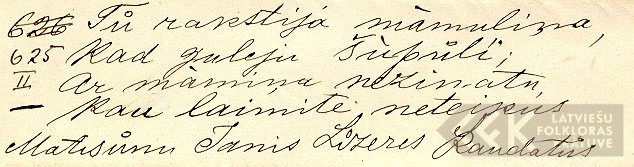 626 Tů rakstija mãmuliņa,
625 Kad guleju šūpůlī;
II Ar mãmiņa nezinatu,
— Kau laimite neteikus
Matisůnu Janis Lizeres Raudatůs
LATVIEŠU
FOLKLORAS
KRĀTUVE